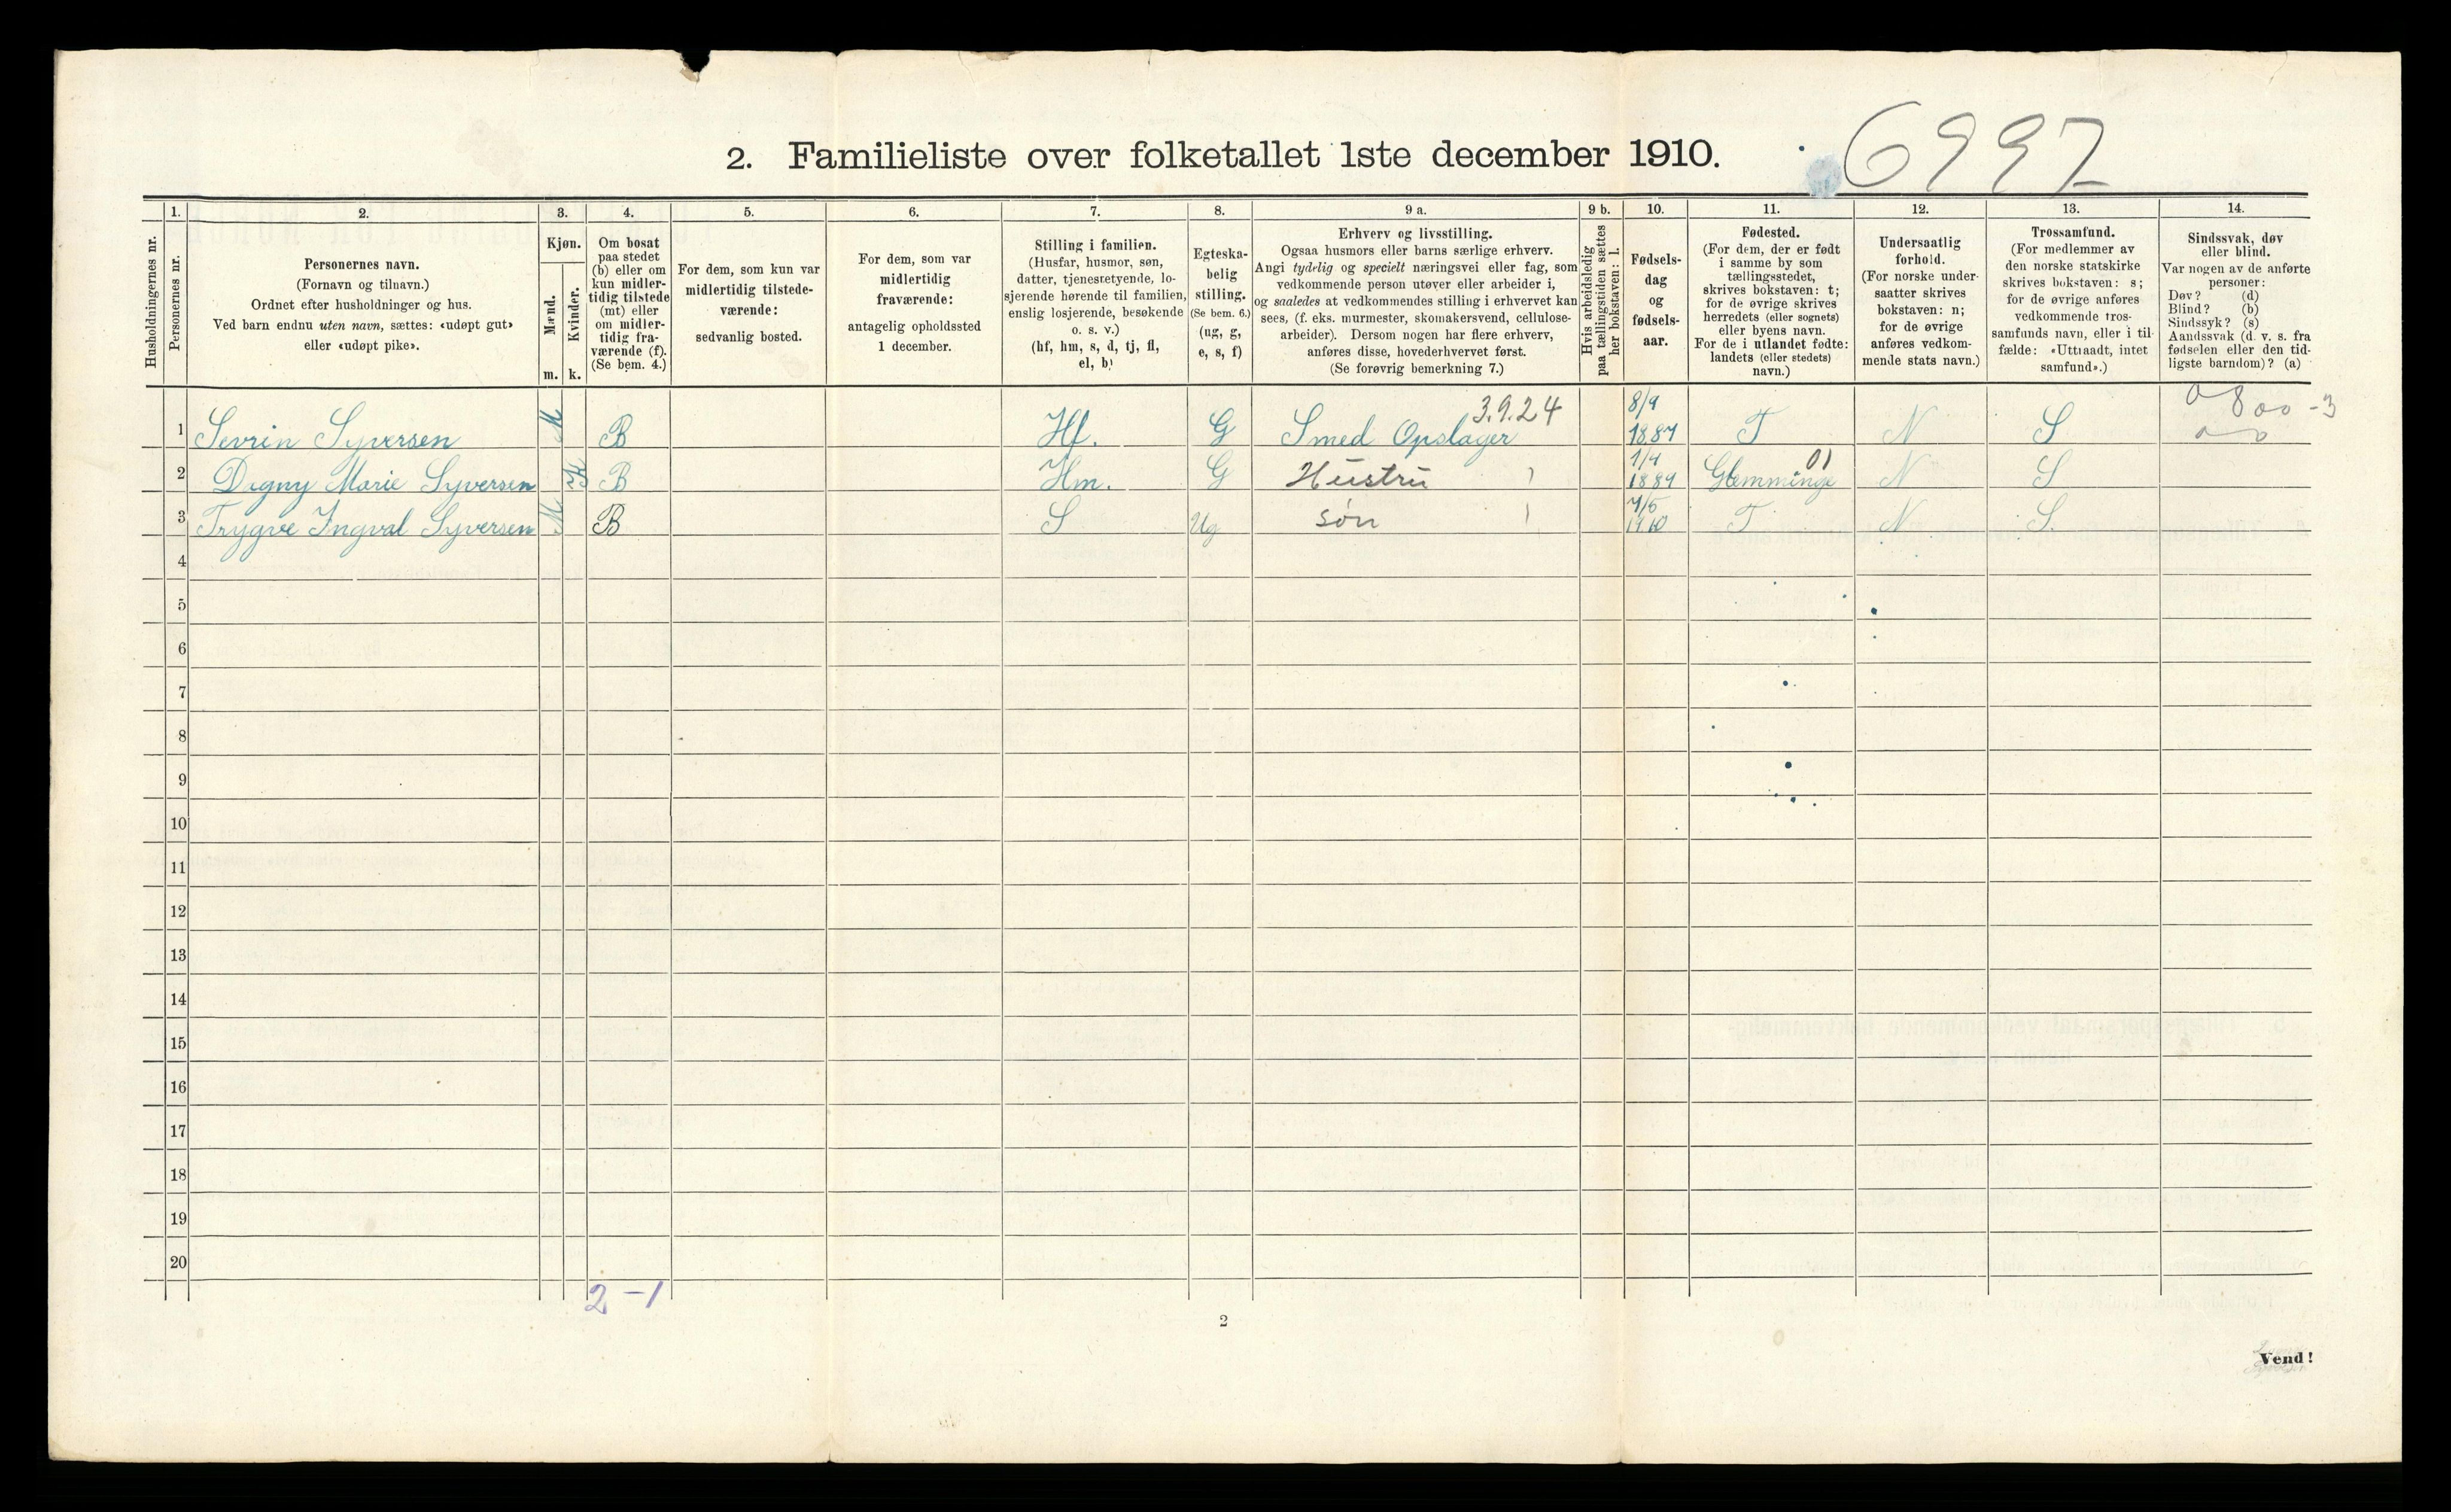 6992
2. Familieliste over folketallet 1ste december 1910.
Husholdningernes nr.
1.
Personernes nr.
2.
Personernes navn.
(Fornavn og tilnavn.)
Ordnet efter husholdninger og hus.
Ved barn endnu uten navn, sættes: «udøpt gut»
eller «udøpt pike».
3.
Kjøn.
Mænd.
Kvinder.
m.
k.
4.
Om bosat
paa stedet
(b) eller om
kun midler-
tidig tilstede
(mt) eller
om midler-
tidig fra-
værende (f).
(Se bem. 4.)
5.
For dem, som kun var
midlertidig tilstede-
værende:
sedvanlig bosted.
6.
For dem, som var
midlertidig
fraværende:
antagelig opholdssted
1 december.
7.
Stilling i familien.
(Husfar, husmor, søn,
datter, tjenestetyende, lo-
sjerende hørende til familien,
enslig losjerende, besøkende
o. s. v.)
(hf, hm, s, d, tj, fl,
el, b)
8.
Egteska-
belig
stilling.
(Se bem. 6.)
(ug, g,
e, s, f)
9 a.
Erhverv og livsstilling.
Ogsaa husmors eller barns særlige erhverv.
Angi tydelig og specielt næringsvei eller fag, som
vedkommende person utøver eller arbeider i,
og saaledes at vedkommendes stilling i erhvervet kan
sees, (f. eks. murmester, skomakersvend, cellulose-
arbeider). Dersom nogen har flere erhverv,
anføres disse, hovederhvervet først.
(Se forøvrig bemerkning 7.)
9 b.
Hvis arbeidsledig
paa tællingstiden sættes
her bokstaven: l.
10.
Fødsels-
dag
og
fødsels-
aar.
11.
Fødested.
(For dem, der er født
i samme by som
tællingsstedet,
skrives bokstaven: t;
for de øvrige skrives
herredets (eller sognets)
eller byens navn.
For de i utlandet fødte:
landets (eller stedets)
navn.)
12.
Undersaatlig
forhold.
(For norske under-
saatter skrives
bokstaven: n;
for de øvrige
anføres vedkom-
mende stats navn.)
13.
Trossamfund.
(For medlemmer av
den norske statskirke
skrives bokstaven: s;
for de øvrige anføres
vedkommende tros-
samfunds navn, eller i til-
fælde: «Uttraadt, intet
samfund».)
14.
Sindssvak, døv
eller blind.
Var nogen av de anførte
personer:
Døv? (d)
Blind? (b)
Sindssyk? (s)
Aandssvak (d. v. s. fra
fødselen eller den tid-
ligste barndom)? (a)
3.9.24
1 Sevrin Syversen M B Hf. G Smed Opslager 8/9 1887 T N S
2 Dagny Marie Syversen K B Hm. G Hustru 1/4 1889 Glemminge 01 N S
3 Trygve Ingval Syversen M B S Ug søn 7/5 1910 T N S.
4
5
6
7
8
9
10
11
12
13
14
15
16
17
18
19
20
2 - 1
2
Vend!